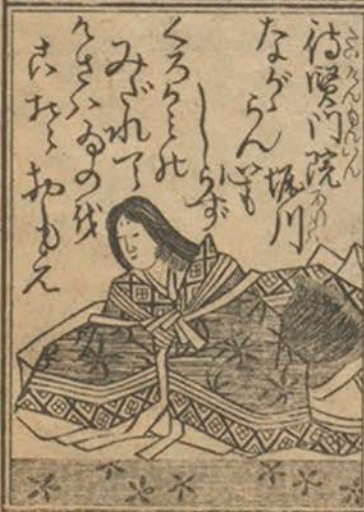 待賢門院堀川
ながゝらん心も
しらず
くろかみの
みだれて
けさハものを
こそおもへ